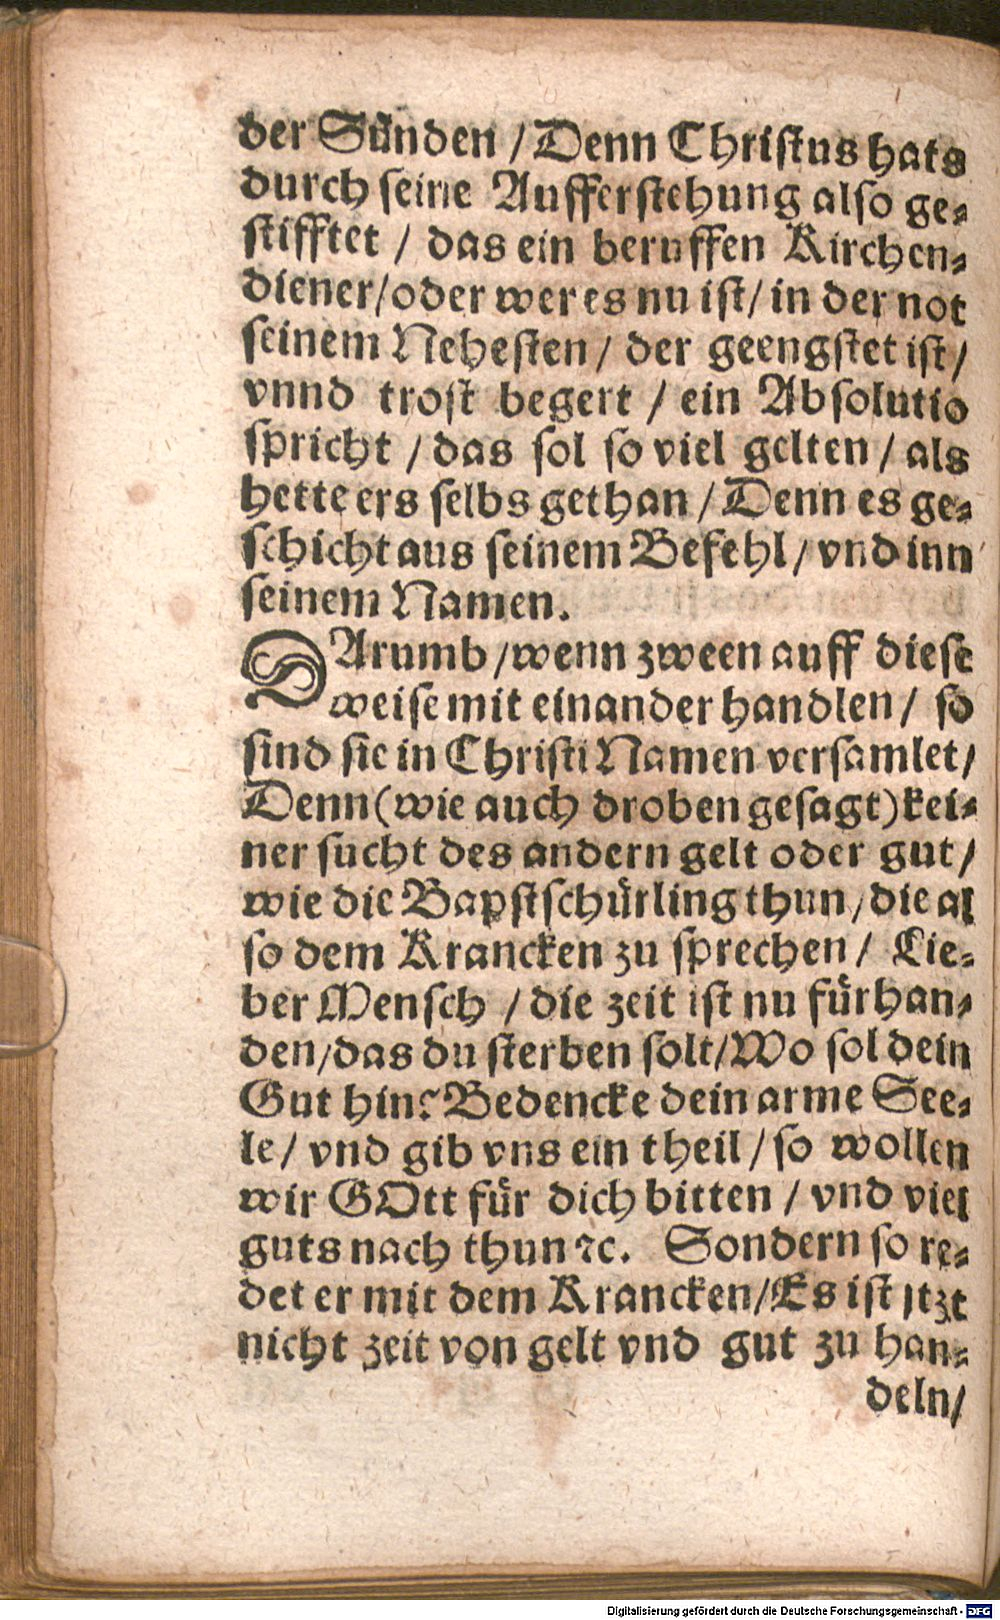 der Sünden / Denn Christus hats
durch seine Aufferstehung also ge-
stifftet / das ein beruffen Kirchen-
diener/oder wer es nu ist/ in der not
seinem Nehesten/ der geengstet ist/
vnnd trost begert / ein Absolutio
spricht / das sol so viel gelten / als
hette ers selbs gethan / Denn es ge-
schicht aus seinem Befehl/ vnd inn
seinem Namen.
DArumb/wenn zween auff diese
weise mit einander handlen/ so
sind sie in Christi Namen versamlet/
Denn (wie auch droben gesagt) kei-
ner sucht des andern gelt oder gut/
wie die Bapstschürling thun/die al
so dem Krancken zu sprechen/ Lie-
ber Mensch / die zeit ist nu fürhan-
den/das du sterben solt/Wo sol dein
Gut hin? Bedencke dein arme See-
le/ vnd gib vns ein theil/so wollen
wir GOtt für dich bitten / vnd viel
guts nach thun ꝛc. Sondern so re-
det er mit dem Krancken/Es ist jtzt
nicht zeit von gelt vnd gut zu han-
deln/
Digitalisierung gefördert durch die Deutsche Forschungsgemeinschaft - DFG